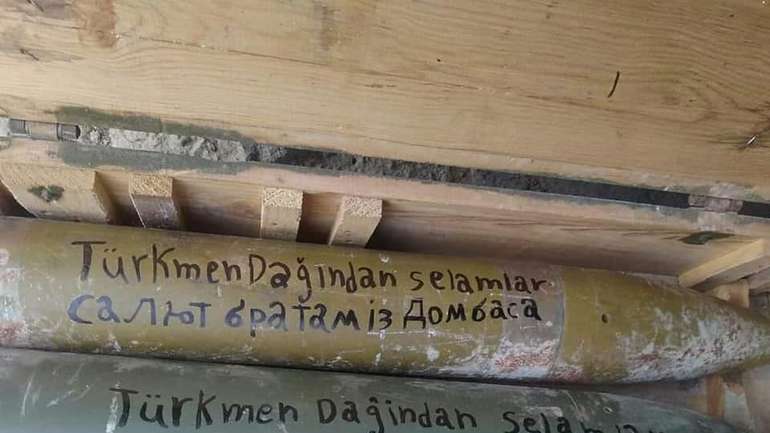 TürkmenDağından selamlar
салют братам із Домбаса
Türkmen Dağından selamlar